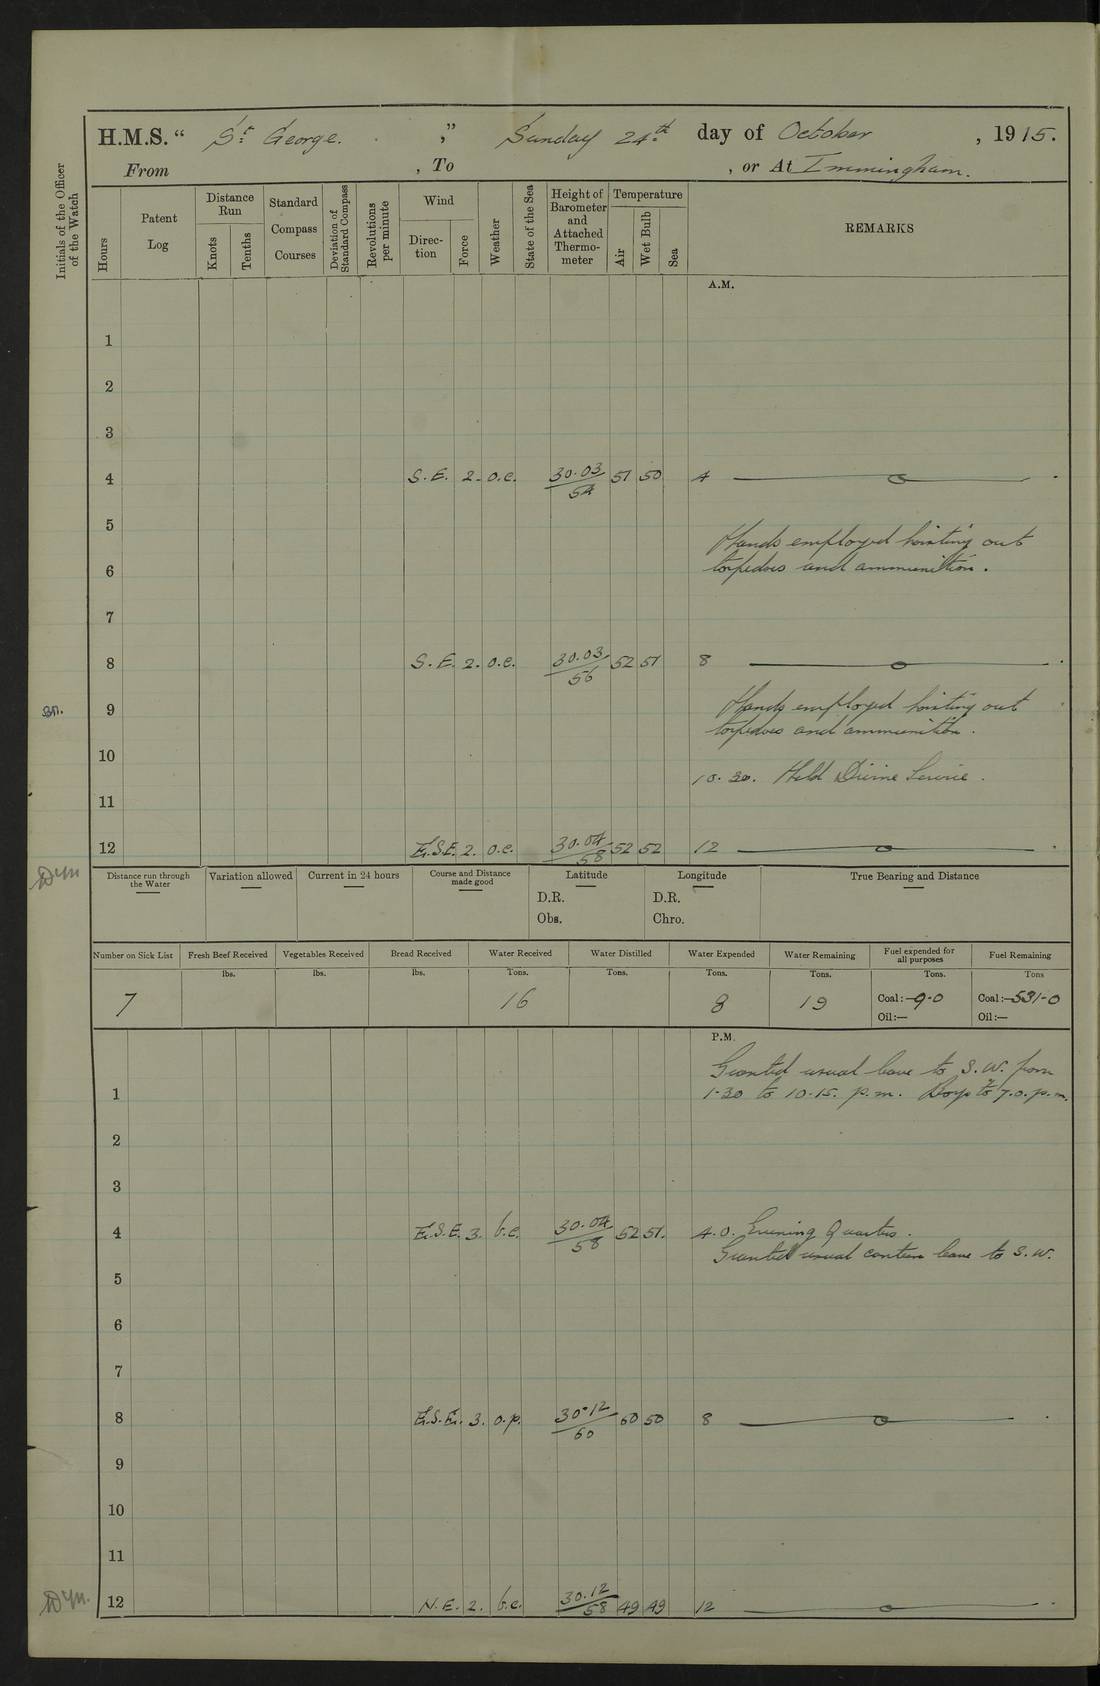 H.M.S. “ St George. ,” Sunday 24th day of October , 1915.
From , To , or At Immingham.
Initials of the Officer of the Watch
Hours
Patent Log
Distance Run
Knots
Tenths
Standard Compass Courses
Deviation of Standard Compass
Revolutions per minute
Wind
Direc-tion
Force
Weather
State of the Sea
Height of Barometer and Attached Thermo-meter
Temperature
Air
Wet Bulb
Sea
REMARKS
A.M.
1
2
3
4 S.E. 2. o.c. 30.03/54 51 50 4
5
Hands employed hoisting out
6 torpedoes and ammunition.
7
8 S.E. 2. o.c. 30.03/56 52 51 8
9 Hands employed hoisting out
torpedoes and ammunition.
10
10.30. Held Divine Service.
11
12 E.S.E. 2. o.c. 30.04/58 52 52 12
Distance run through the Water
Variation allowed
Current in 24 hours
Course and Distance made good
Latitude
D.R.
Obs.
Longitude
D.R.
Chro.
True Bearing and Distance
Number on Sick List Fresh Beef Received Vegetables Received Bread Received Water Received Water Distilled Water Expended Water Remaining Fuel expended for all purposes Fuel Remaining
lbs. lbs. lbs. Tons. Tons. Tons. Tons. Tons. Tons
7 16 8 19 Coal:—9.0 Coal:—531.0
Oil:— Oil:—
P.M.
Granted usual leave to S.W. from
1 1.30 to 10.15. p.m. Boys to 7.0. p.m.
2
3
4 E.S.E. 3. b.c. 30.04/58 52 51. 4.0. Evening Quarters.
Granted usual canteen leave to S.W.
5
6
7
8 E.S.E. 3. o.p. 30.12/60 50 50 8
9
10
11
12 N.E. 2. b.c. 30.12/58 49 49 12